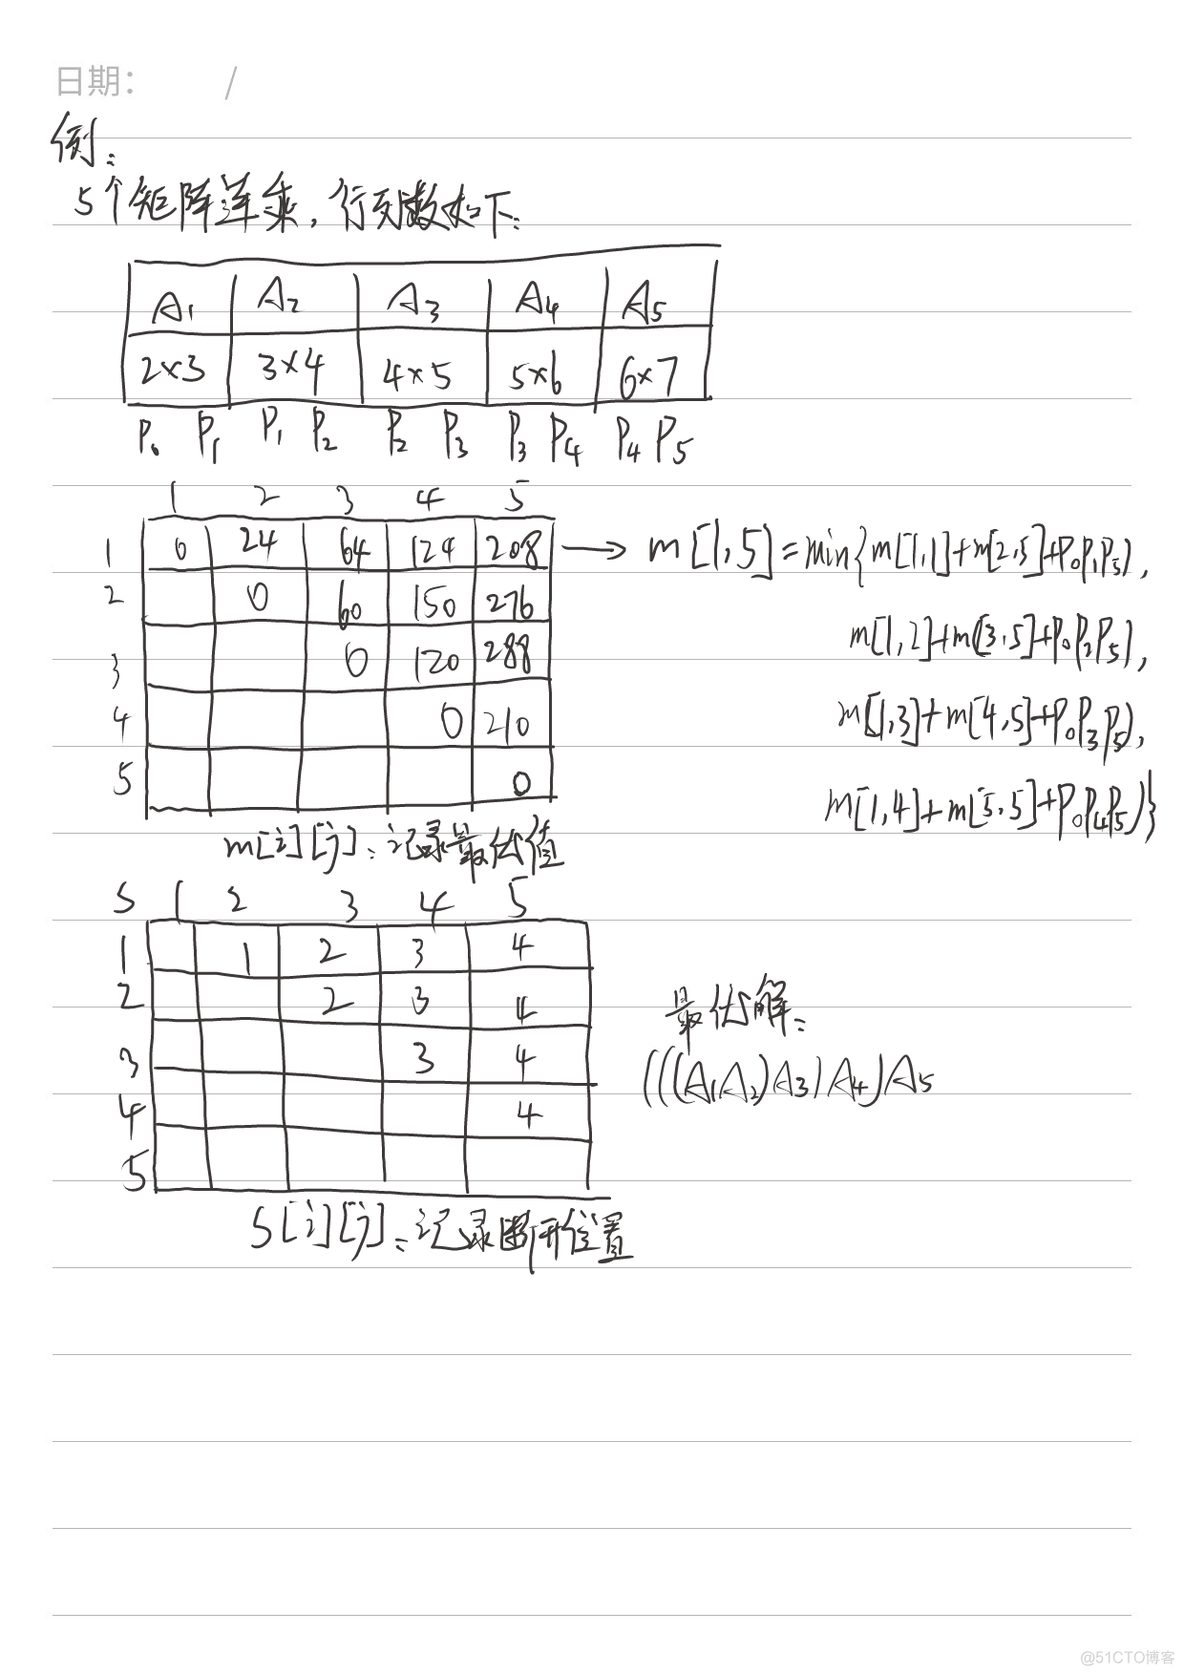 日期: /
例:
5个矩阵连乘,行列数如下:
A₁ A₂ A₃ A₄ A₅
2×3 3×4 4×5 5×6 6×7
P₀ P₁ P₁ P₂ P₂ P₃ P₃ P₄ P₄ P₅
1 2 3 4 5
1 0 24 64 124 208 → m[1,5]=min{m[1,1]+m[2,5]+P₀P₁P₅),
2 0 60 150 276
m[1,2]+m[3,5]+P₀P₂P₅),
3 0 120 288
4 0 210
m[1,3]+m[4,5]+P₀P₃P₅),
5 0
m[1,4]+m[5,5]+P₀P₄P₅)}
m[i][j]:记录最优值
S 1 2 3 4 5
1 1 2 3 4
2 2 3 4
最优解:
3 3 4
(((A₁A₂)A₃)A₄)A₅
4 4
5
S[i][j]:记录断开位置
@51CTO博客